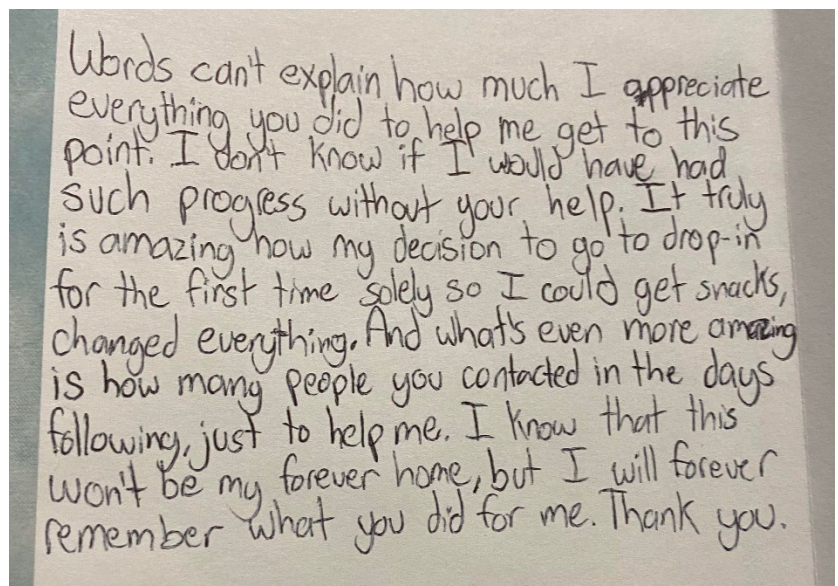 Words can't explain how much I appreciate
everything you did to help me get to this
point. I don't know if I would have had
such progress without your help. It truly
is amazing how my decision to go to drop-in
for the first time solely so I could get snacks,
changed everything. And what's even more amazing
is how many people you contacted in the days
following, just to help me. I know that this
won't be my forever home, but I will forever
remember what you did for me. Thank you.